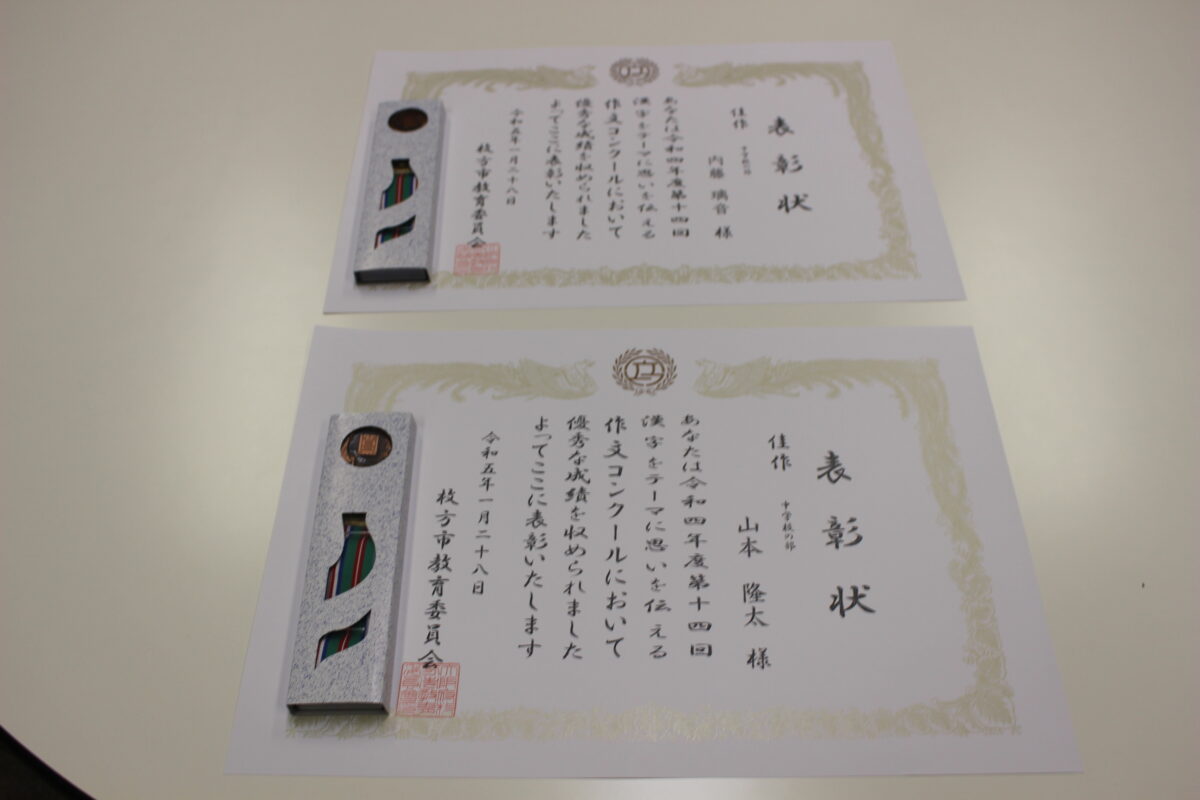 表彰状
佳作
中学校の部
内藤 璃音 様
あなたは令和四年度第十四回
漢字をテーマに思いを伝える
作文コンクールにおいて
優秀な成績を収められました
よってここに表彰いたします
令和五年一月二十八日
枚方市教育委員会
表彰状
佳作
中学校の部
山本 隆太 様
あなたは令和四年度第十四回
漢字をテーマに思いを伝える
作文コンクールにおいて
優秀な成績を収められました
よってここに表彰いたします
令和五年一月二十八日
枚方市教育委員会